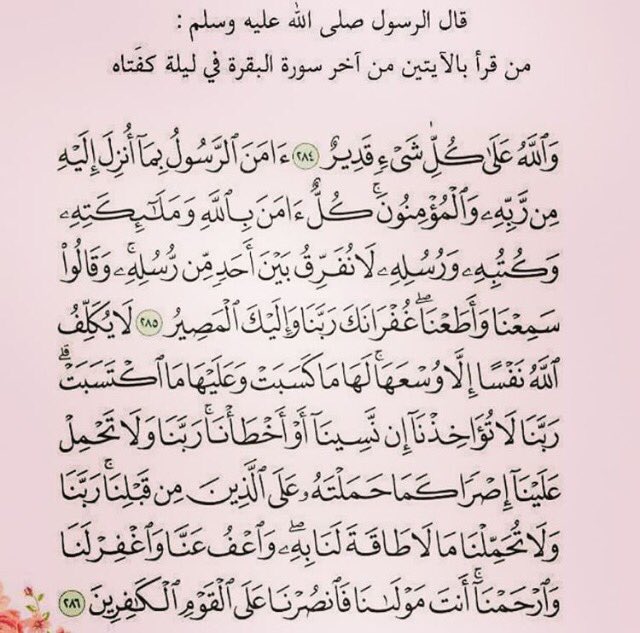 قال الرسول صلى الله عليه وسلم :
من قرأ بالآيتين من آخر سورة البقرة في ليلة كفَتاه
وَٱللَّهُ عَلَىٰ كُلِّ شَىْءٍ قَدِيرٌ ٢٨٤ ءَامَنَ ٱلرَّسُولُ بِمَآ أُنزِلَ إِلَيْهِ
مِن رَّبِّهِۦ وَٱلْمُؤْمِنُونَۚ كُلٌّ ءَامَنَ بِٱللَّهِ وَمَلَٰٓئِكَتِهِۦ
وَكُتُبِهِۦ وَرُسُلِهِۦ لَا نُفَرِّقُ بَيْنَ أَحَدٍ مِّن رُّسُلِهِۦۚ وَقَالُوا۟
سَمِعْنَا وَأَطَعْنَاۖ غُفْرَانَكَ رَبَّنَا وَإِلَيْكَ ٱلْمَصِيرُ ٢٨٥ لَا يُكَلِّفُ
ٱللَّهُ نَفْسًا إِلَّا وُسْعَهَاۚ لَهَا مَا كَسَبَتْ وَعَلَيْهَا مَا ٱكْتَسَبَتْۗ
رَبَّنَا لَا تُؤَاخِذْنَآ إِن نَّسِينَآ أَوْ أَخْطَأْنَاۚ رَبَّنَا وَلَا تَحْمِلْ
عَلَيْنَآ إِصْرًا كَمَا حَمَلْتَهُۥ عَلَى ٱلَّذِينَ مِن قَبْلِنَاۚ رَبَّنَا
وَلَا تُحَمِّلْنَا مَا لَا طَاقَةَ لَنَا بِهِۦۖ وَٱعْفُ عَنَّا وَٱغْفِرْ لَنَا
وَٱرْحَمْنَآۚ أَنتَ مَوْلَىٰنَا فَٱنصُرْنَا عَلَى ٱلْقَوْمِ ٱلْكَٰفِرِينَ ٢٨٦